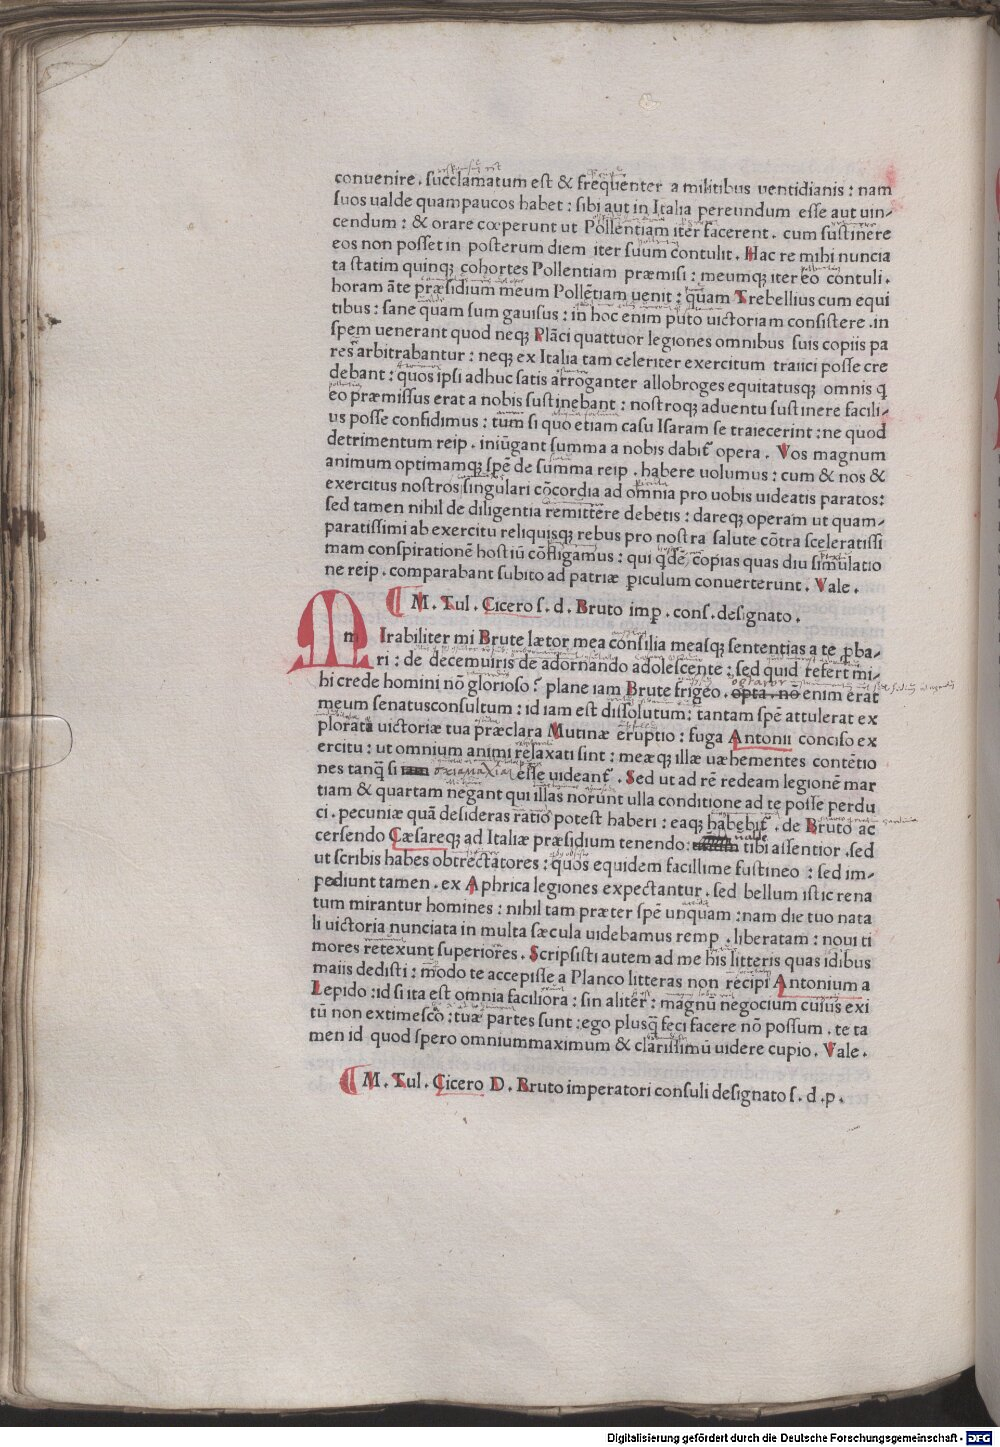 conuenire . succlamatum est & frequenter a militibus uentidianis : nam
suos ualde quampaucos habet : sibi aut in Italia pereundum esse aut uin-
cendum : & orare cœperunt ut Pollentiam iter facerent . cum sustinere
eos non posset in posterum diem iter suum contulit . Hac re mihi nuncia
ta statim quinqꝫ cohortes Pollentiam præmisi : meumqꝫ iter eo contuli .
horam āte præsidium meum Pollētiam uenit : quam Trebellius cum equi
tibus : sane quam sum gauisus : in hoc enim puto uictoriam consistere . in
spem uenerant quod neqꝫ Plāci quattuor legiones omnibus suis copiis pa
res arbitrabantur : neqꝫ ex Italia tam celeriter exercitum traiici posse cre
debant : quos ipsi adhuc satis arroganter allobroges equitatusqꝫ omnis q
eo præmissus erat a nobis sustinebant : nostroqꝫ aduentu sustinere facili-
us posse confidimus : tum si quo etiam casu Isaram se traiecerint : ne quod
detrimentum reip . iniūgant summa a nobis dabit᷑ opera . Vos magnum
animum optimamqꝫ spē de summa reip . habere uolumus : cum & nos &
exercitus nostros singulari cōcordia ad omnia pro uobis uideatis paratos :
sed tamen nihil de diligentia remittere debetis : dareqꝫ operam ut quam-
paratissimi ab exercitu reliquisqꝫ rebus pro nostra salute cōtra sceleratissi
mam conspirationē hostiū cōfligamus : qui qdē copias quas diu simulatio
ne reip . comparabant subito ad patriæ ꝑiculum conuerterunt . Vale .
M . Tul . Cicero s . d . Bruto imp . cons . designato .
m Irabiliter mi Brute lætor mea consilia measqꝫ sententias a te ꝓba-
ri : de decemuiris de adornando adolescente : sed quid refert mi-
hi crede homini nō glorioso ? plane iam Brute frigeo . opta . nō enim erat
meum senatusconsultum : id iam est dissolutum : tantam spē attulerat ex
plorata uictoriæ tua præclara Mutinæ eruptio : fuga Antonii conciso ex
ercitu : ut omnium animi relaxati sint : meæqꝫ illæ uæhementes contētio
nes tanq̄ si σκιαμαχίαι esse uideant᷑ . Sed ut ad rē redeam legionē mar
tiam & quartam negant qui illas norunt ulla conditione ad te posse perdu
ci . pecuniæ quā desideras ratio potest haberi : eaqꝫ habebit᷑ . de Bruto ac
cersendo Cæsareqꝫ ad Italiæ præsidium tenendo : ualde tibi assentior . sed
ut scribis habes obtrectatores : quos equidem facillime sustineo : sed im-
pediunt tamen . ex Aphrica legiones expectantur . sed bellum istic rena
tum mirantur homines : nihil tam præter spē unquam : nam die tuo nata
li uictoria nunciata in multa sæcula uidebamus remp . liberatam : noui ti
mores retexunt superiores . Scripsisti autem ad me his litteris quas idibus
maiis dedisti : modo te accepisse a Planco litteras non recipi Antonium a
Lepido : id si ita est omnia faciliora : sin aliter : magnū negocium cuius exi
tū non extimesco : tuæ partes sunt : ego plusq̄ feci facere nō possum . te ta
men id quod spero omniummaximum & clarissimū uidere cupio . Vale .
M . Tul . Cicero D . Bruto imperatori consuli designato s . d . p .
Digitalisierung gefördert durch die Deutsche Forschungsgemeinschaft - DFG